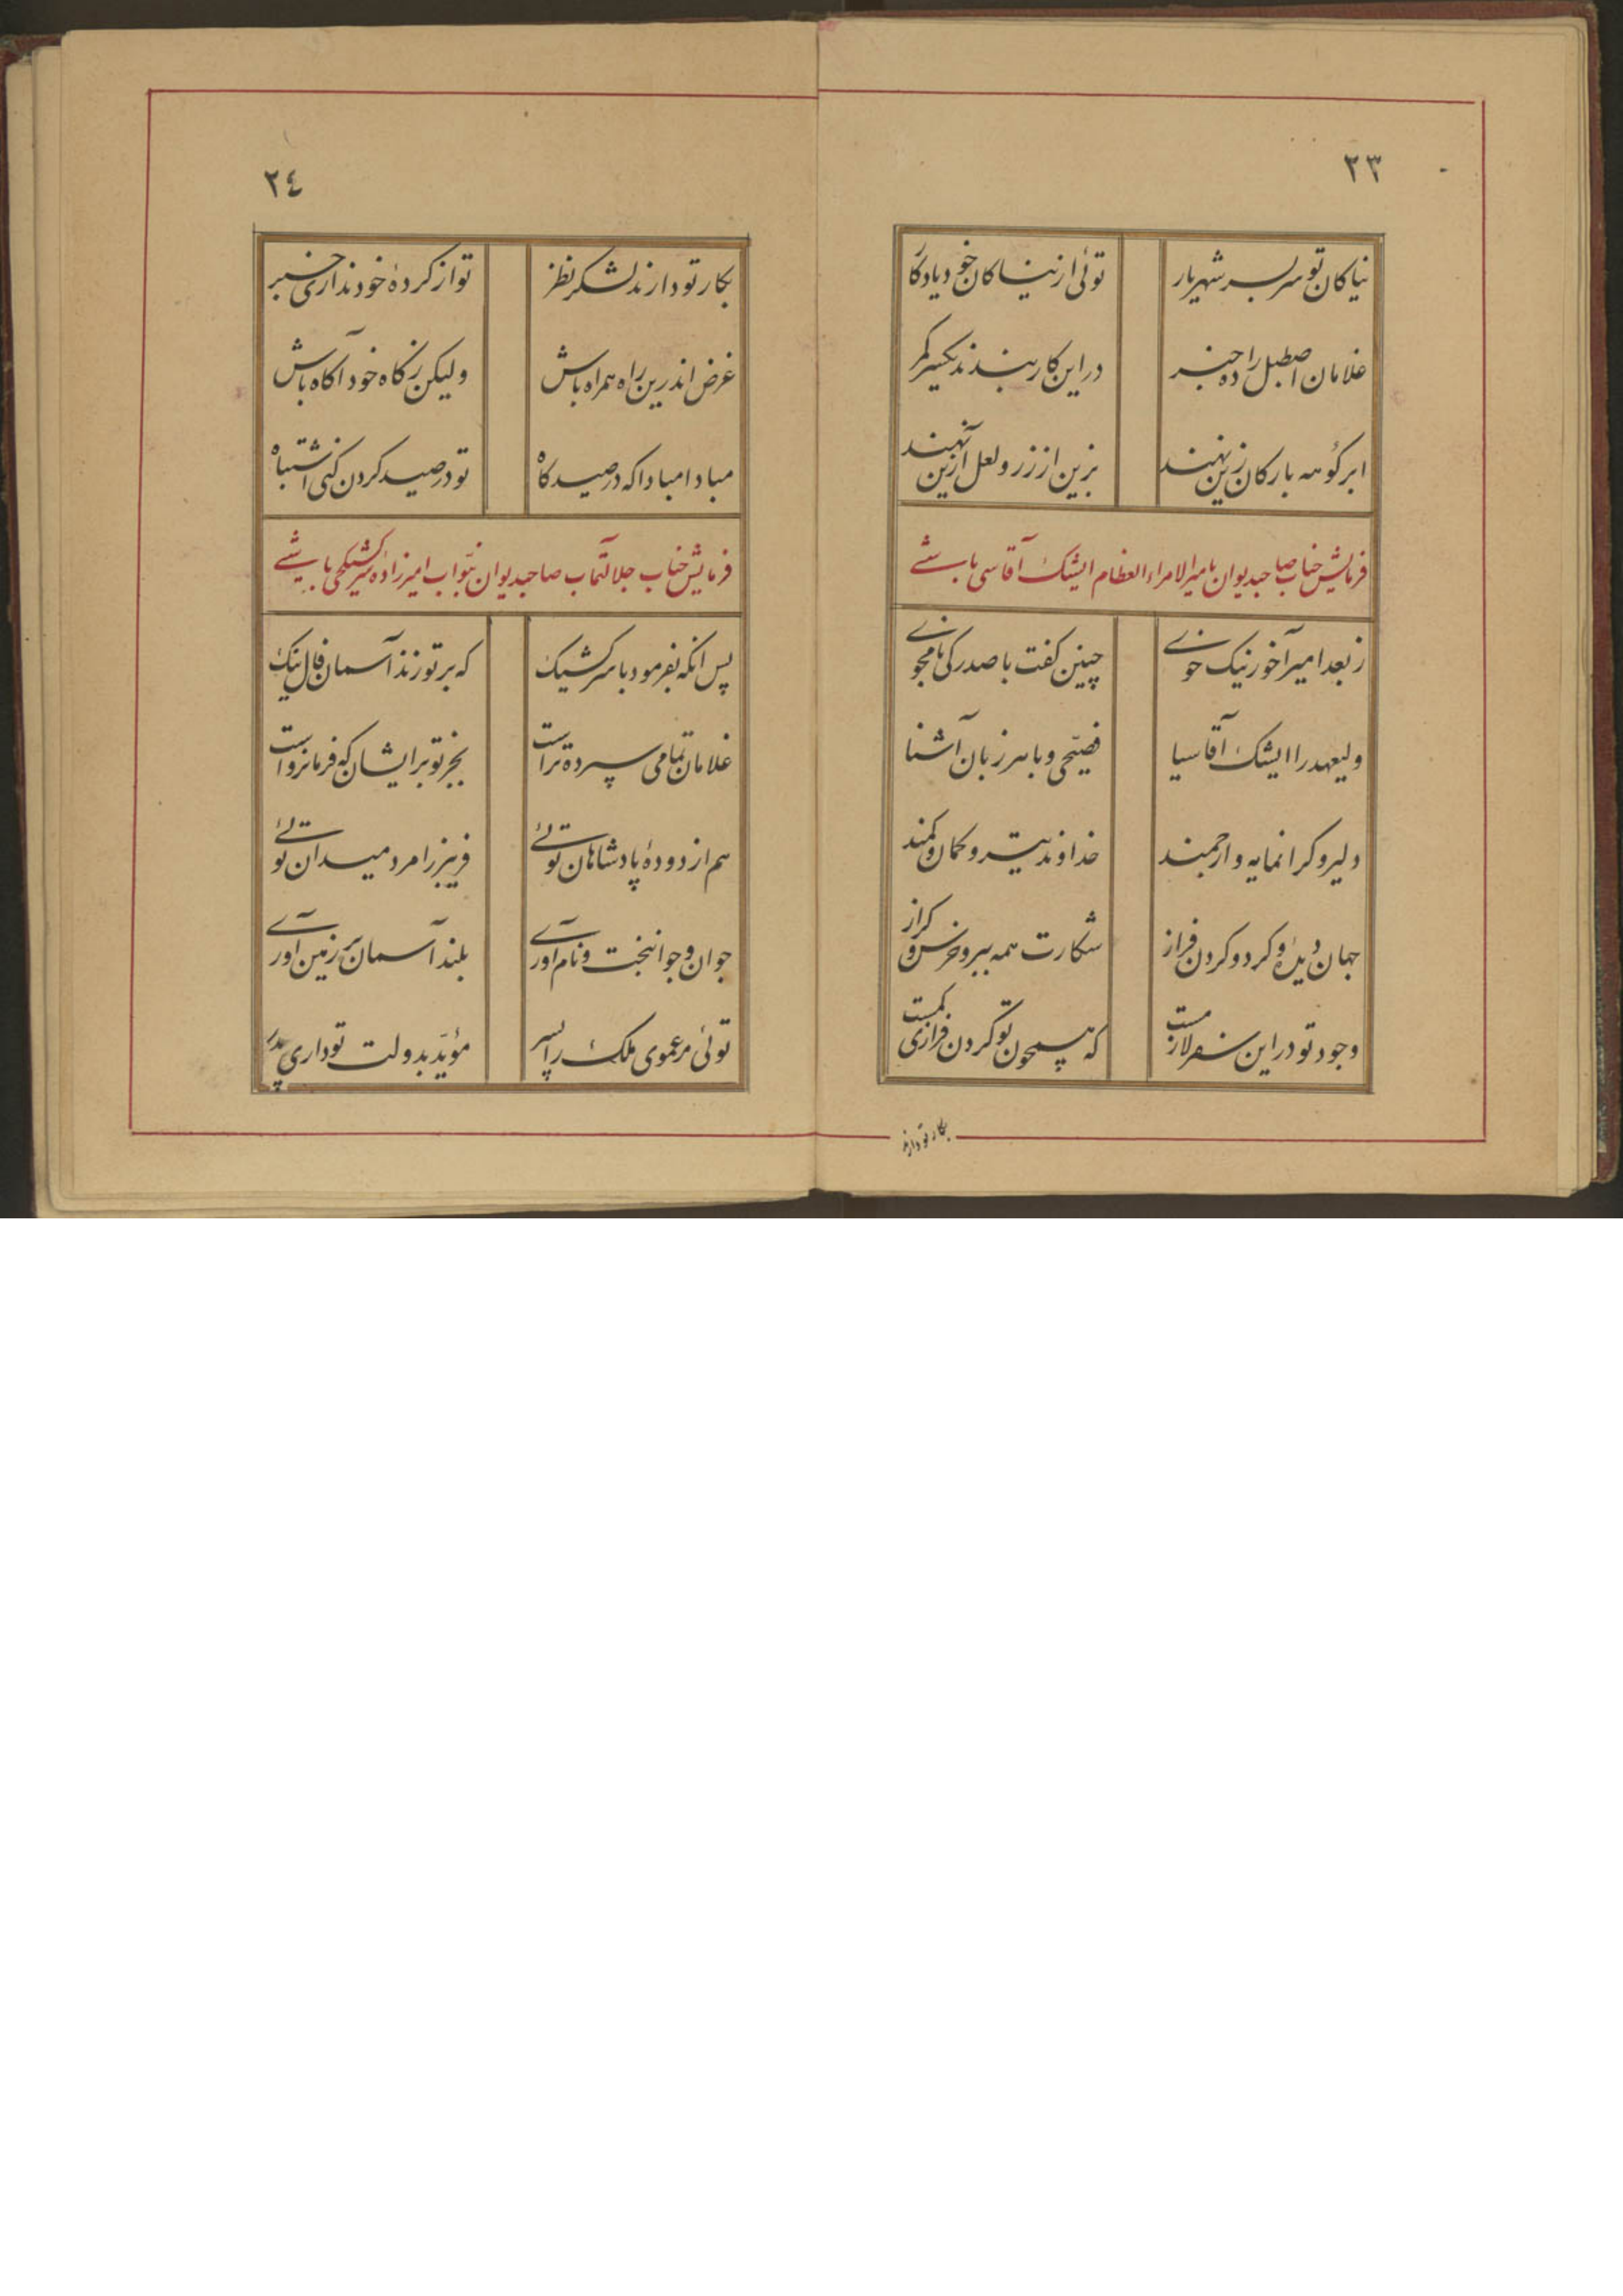 ٢٣
نیاکان تو سربسر شهریار توئی از نیاکان خود یادکار
غلامان اصطبل را ده خبر در این کار بندند یکسر کمر
ابر کوهه بارکان زین نهند بزین از زر و لعل آزین نهند
فرمایش جناب صاحبدیوان بامیرالامراءالعظام ایشک آقاسی باشے
ز بعد امیر آخور نیک خوے چنین کفت با صدرکی نامجوے
ولیعهد را ایشک آقاسیا فصیحی و با هر زبان آشنا
دلیر و کرانمایه و ارجمند خداوند تیر و کمان و کمند
جهان دیدۀ و کرد و کردن فراز شکارت همه ببر و خرس و کراز
وجود تو در این سفر لازمست که همچون تو کردن فرازی کمست
بکار تو دارند
٢٤
بکار تو دارند لشکر نظر تو از کردۀ خود نداری خبر
غرض اندرین راه همراه باش ولیکن ز کاه خود آکاه باش
مبادا مبادا که در صیدکاه تو در صید کردن کنی اشتباه
فرمایش جناب جلالتمآب صاحبدیوان بنوّاب امیرزاده سرکشیکچی باشے
پس انکه بفرمود با سرکشیک که بر تو زند آسمان فال نیک
غلامان تمامی سپرده تراست بجز تو بر ایشان که فرمانرواست
هم از دودۀ پادشاهان توئے فریبرز را مرد میدان توئے
جوان و جوانبخت و نام آورے بلند آسمان بر زمین آورے
توئی مر عموی ملک را پسر مؤیّد بدولت تو داری پدر